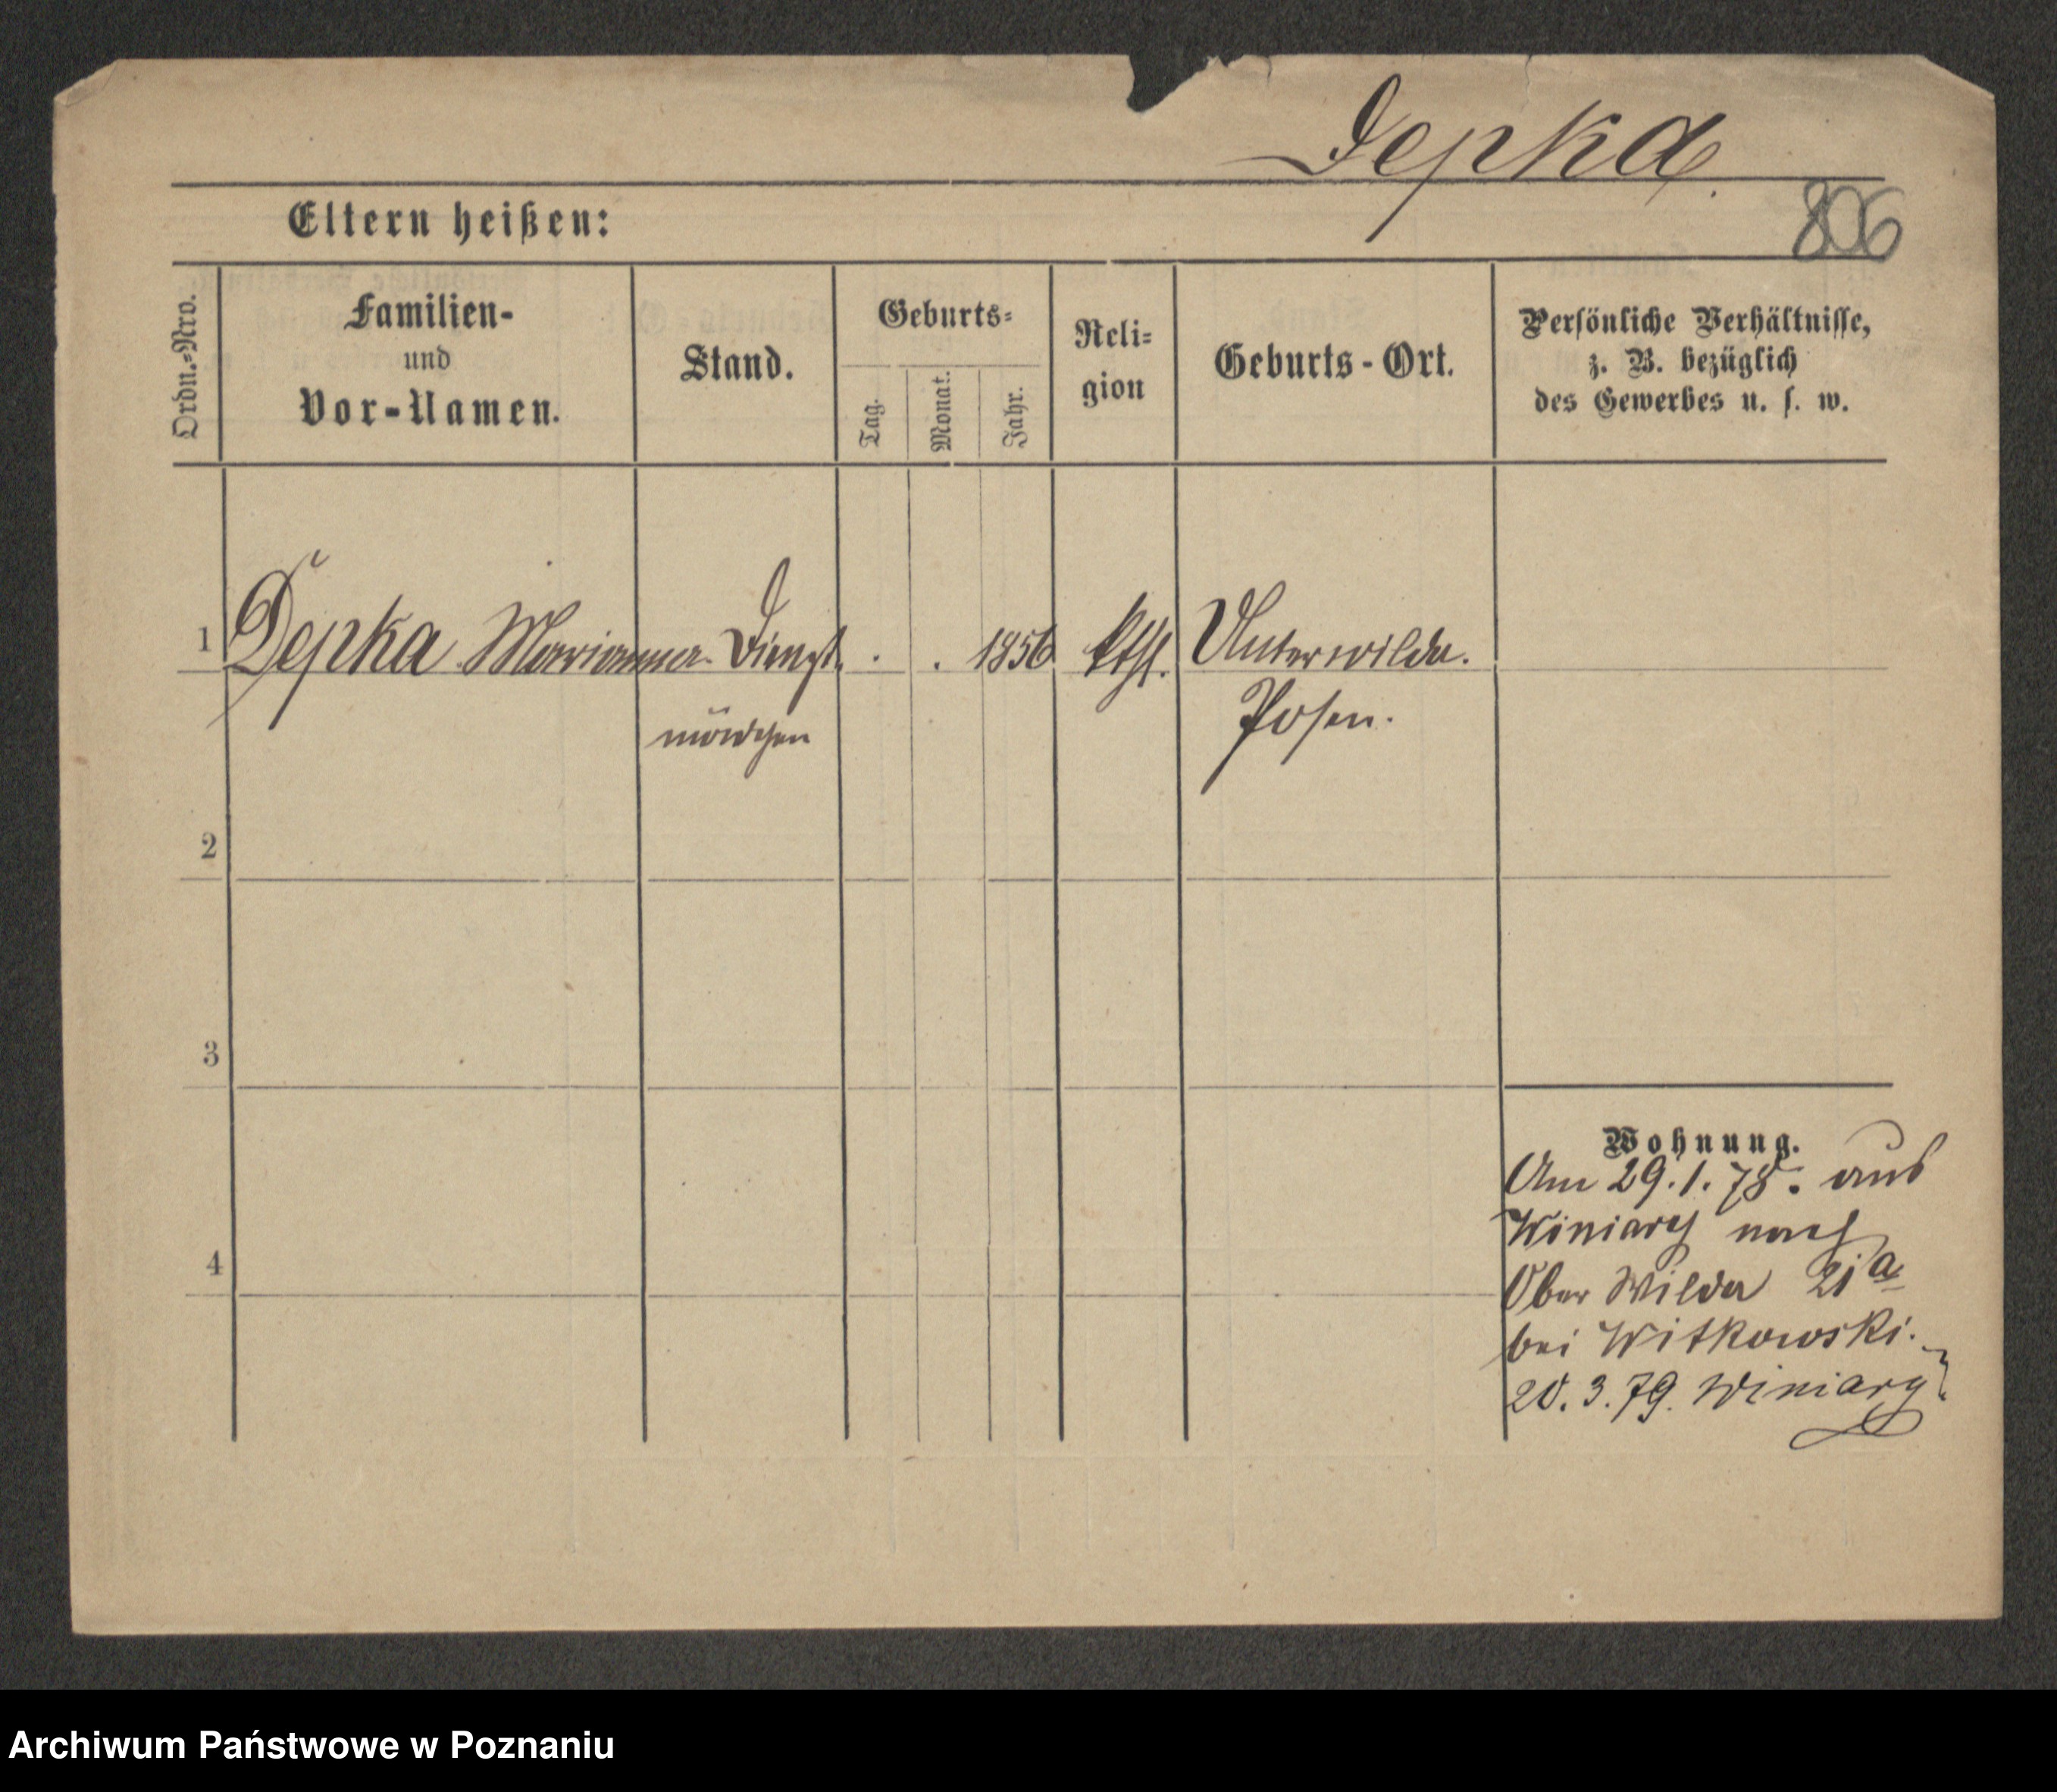 Depka
806
Eltern heißen:
Ordn.-Nro.
Familien-
und
Vor-Namen.
Stand.
Geburts-
Tag.
Monat.
Jahr.
Reli-
gion
Geburts-Ort.
Persönliche Verhältnisse,
z. B. bezüglich
des Gewerbes u. s. w.
1 Depka Marianna Dienst . . 1856 kth. Unterwilda.
mädchen Posen.
2
3
4
Wohnung.
Am 29.1.78. aus
Winiary nach
Ober Wilda 21a
bei Witkowski.
20.3.79. Winiary
Archiwum Państwowe w Poznaniu